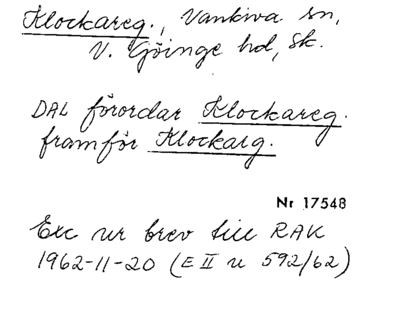 Klockareg., Vankiva sn,
V. Göinge hd, Sk.
DAL förordar Klockareg.
framför Klockarg.
Nr 17548
Exc ur brev till RAK
1962-11-20 (E II u 592/62)